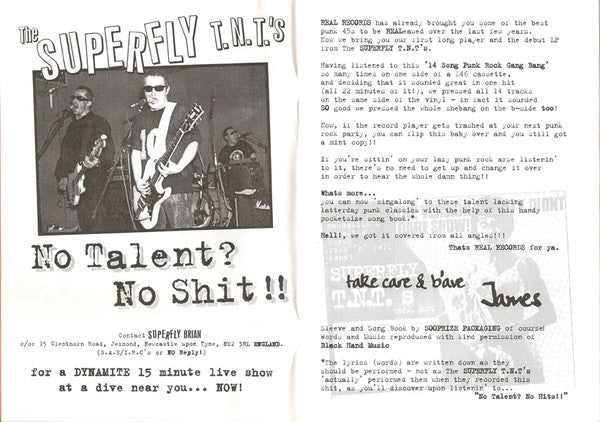 The SUPERFLY T.N.T.'s
No Talent?
No Shit!!
Contact SUPERFLY BRIAN
c/o: 15 Glenthorn Road, Jesmond, Newcastle upon Tyne, NE2 3HL ENGLAND.
(S.A.E/I.R.C's or NO Reply!)
for a DYNAMITE 15 minute live show
at a dive near you... NOW!
REAL RECORDS has already brought you some of the best
punk 45s to be REALeased over the last few years.
Now we bring you our first long player and the debut LP
from The SUPERFLY T.N.T's.
Having listened to this '14 Song Punk Rock Gang Bang'
so many times on one side of a C46 cassette,
and deciding that it sounded great in one hit
(all 22 minutes of it!), we pressed all 14 tracks
on the same side of the vinyl - in fact it sounded
SO good we pressed the whole shebang on the b-side too!
Now, if the record player gets trashed at your next punk
party, you can flip this baby over and you still got
a mint copy!!
If you're sittin' on your lazy punk rock arse listenin'
to it, there's no need to get up and change it over
in order to hear the whole damn thing!!
Whats more...
you can now 'singalong' to these talent lacking
latterday punk classics with the help of this handy
pocketsize song book.*
Hell!, we got it covered from all angles!!!
Thats REAL RECORDS for ya.
take care & b'ave
James
SUPERFLY
T.N.T.'s
Sleeve and Song Book by SOOPRIZE PACKAGING of course!
Words and Music reproduced with kind permission of
Black Hand Music
*The lyrics (words) are written down as they
should be performed - not as The SUPERFLY T.N.T's
'actually' performed them when they recorded this
shit, as you'll discover upon listenin' to...
"No Talent? No Hits!!"